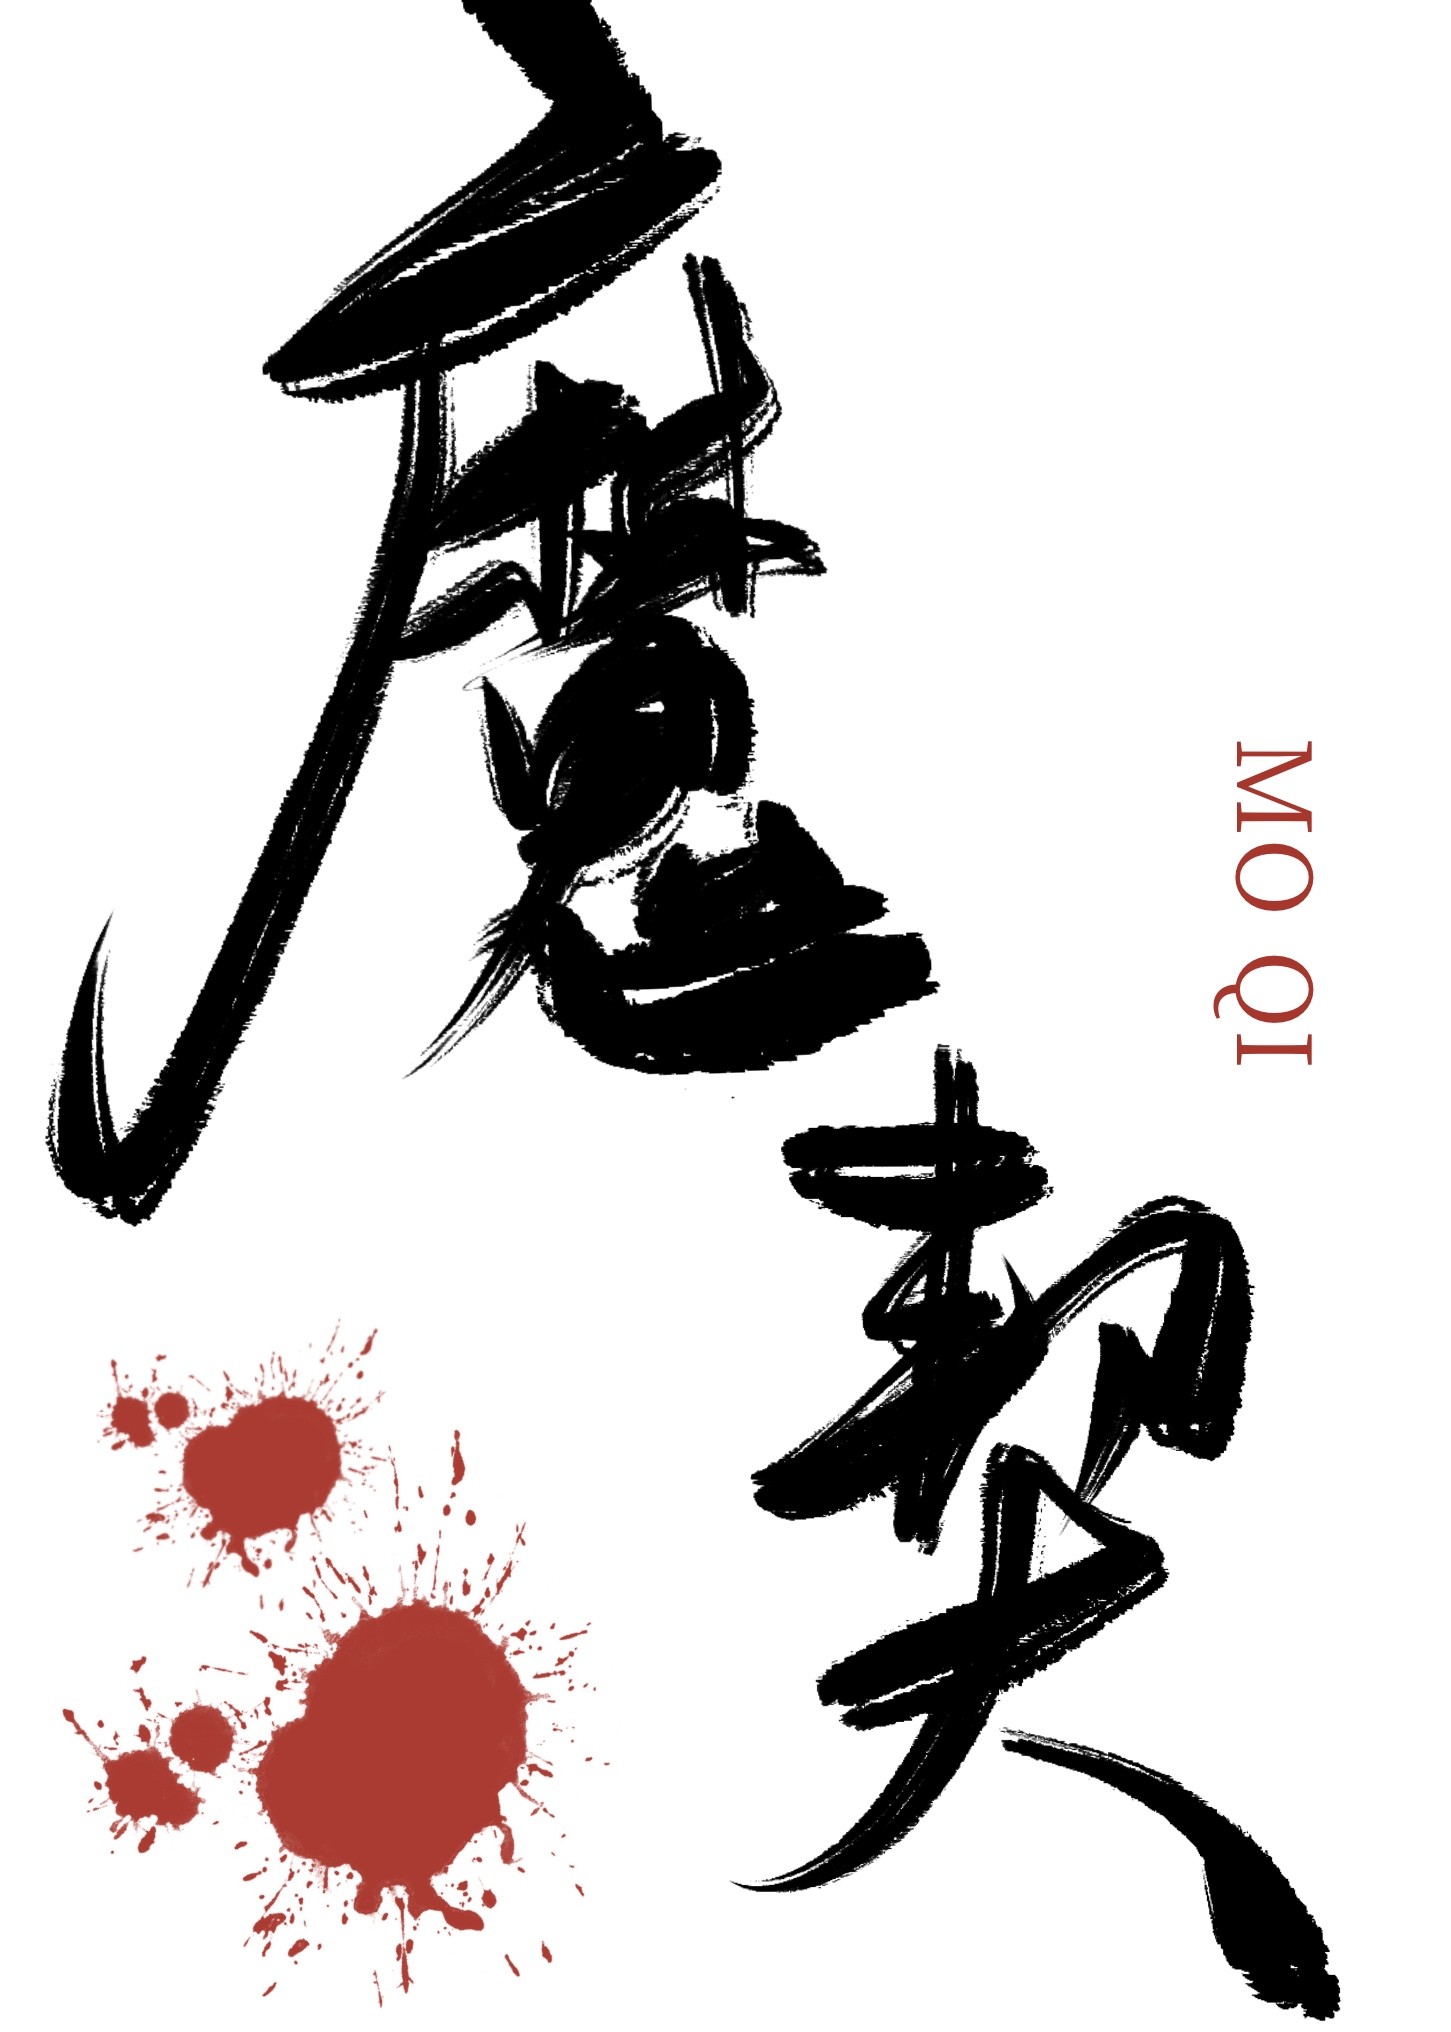 魔契
MO QI